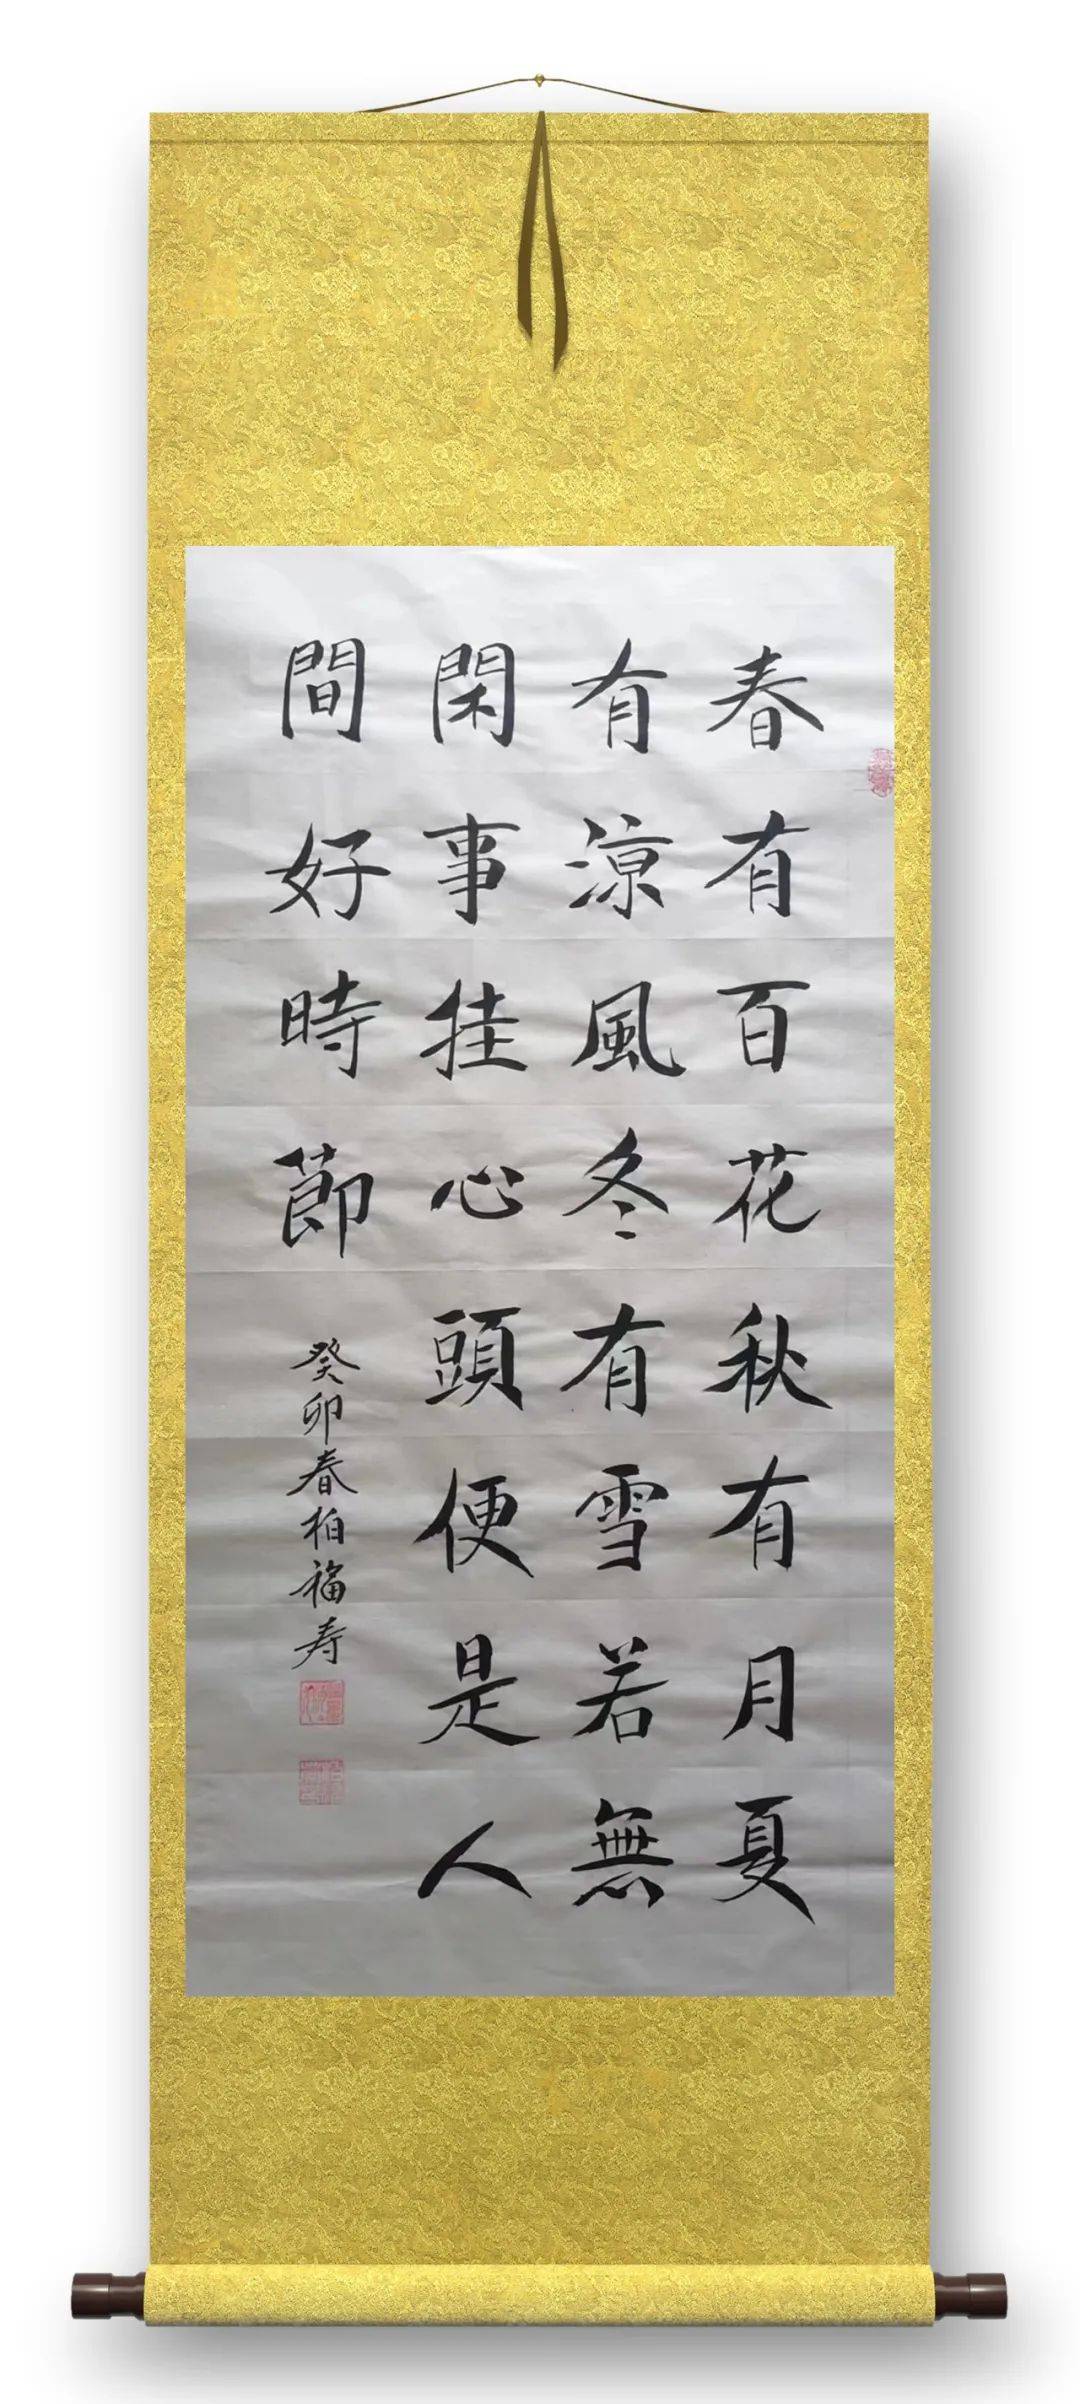 春有百花秋有月夏
有涼風冬有雪若無
閑事挂心頭便是人
間好時節
癸卯春柏福寿